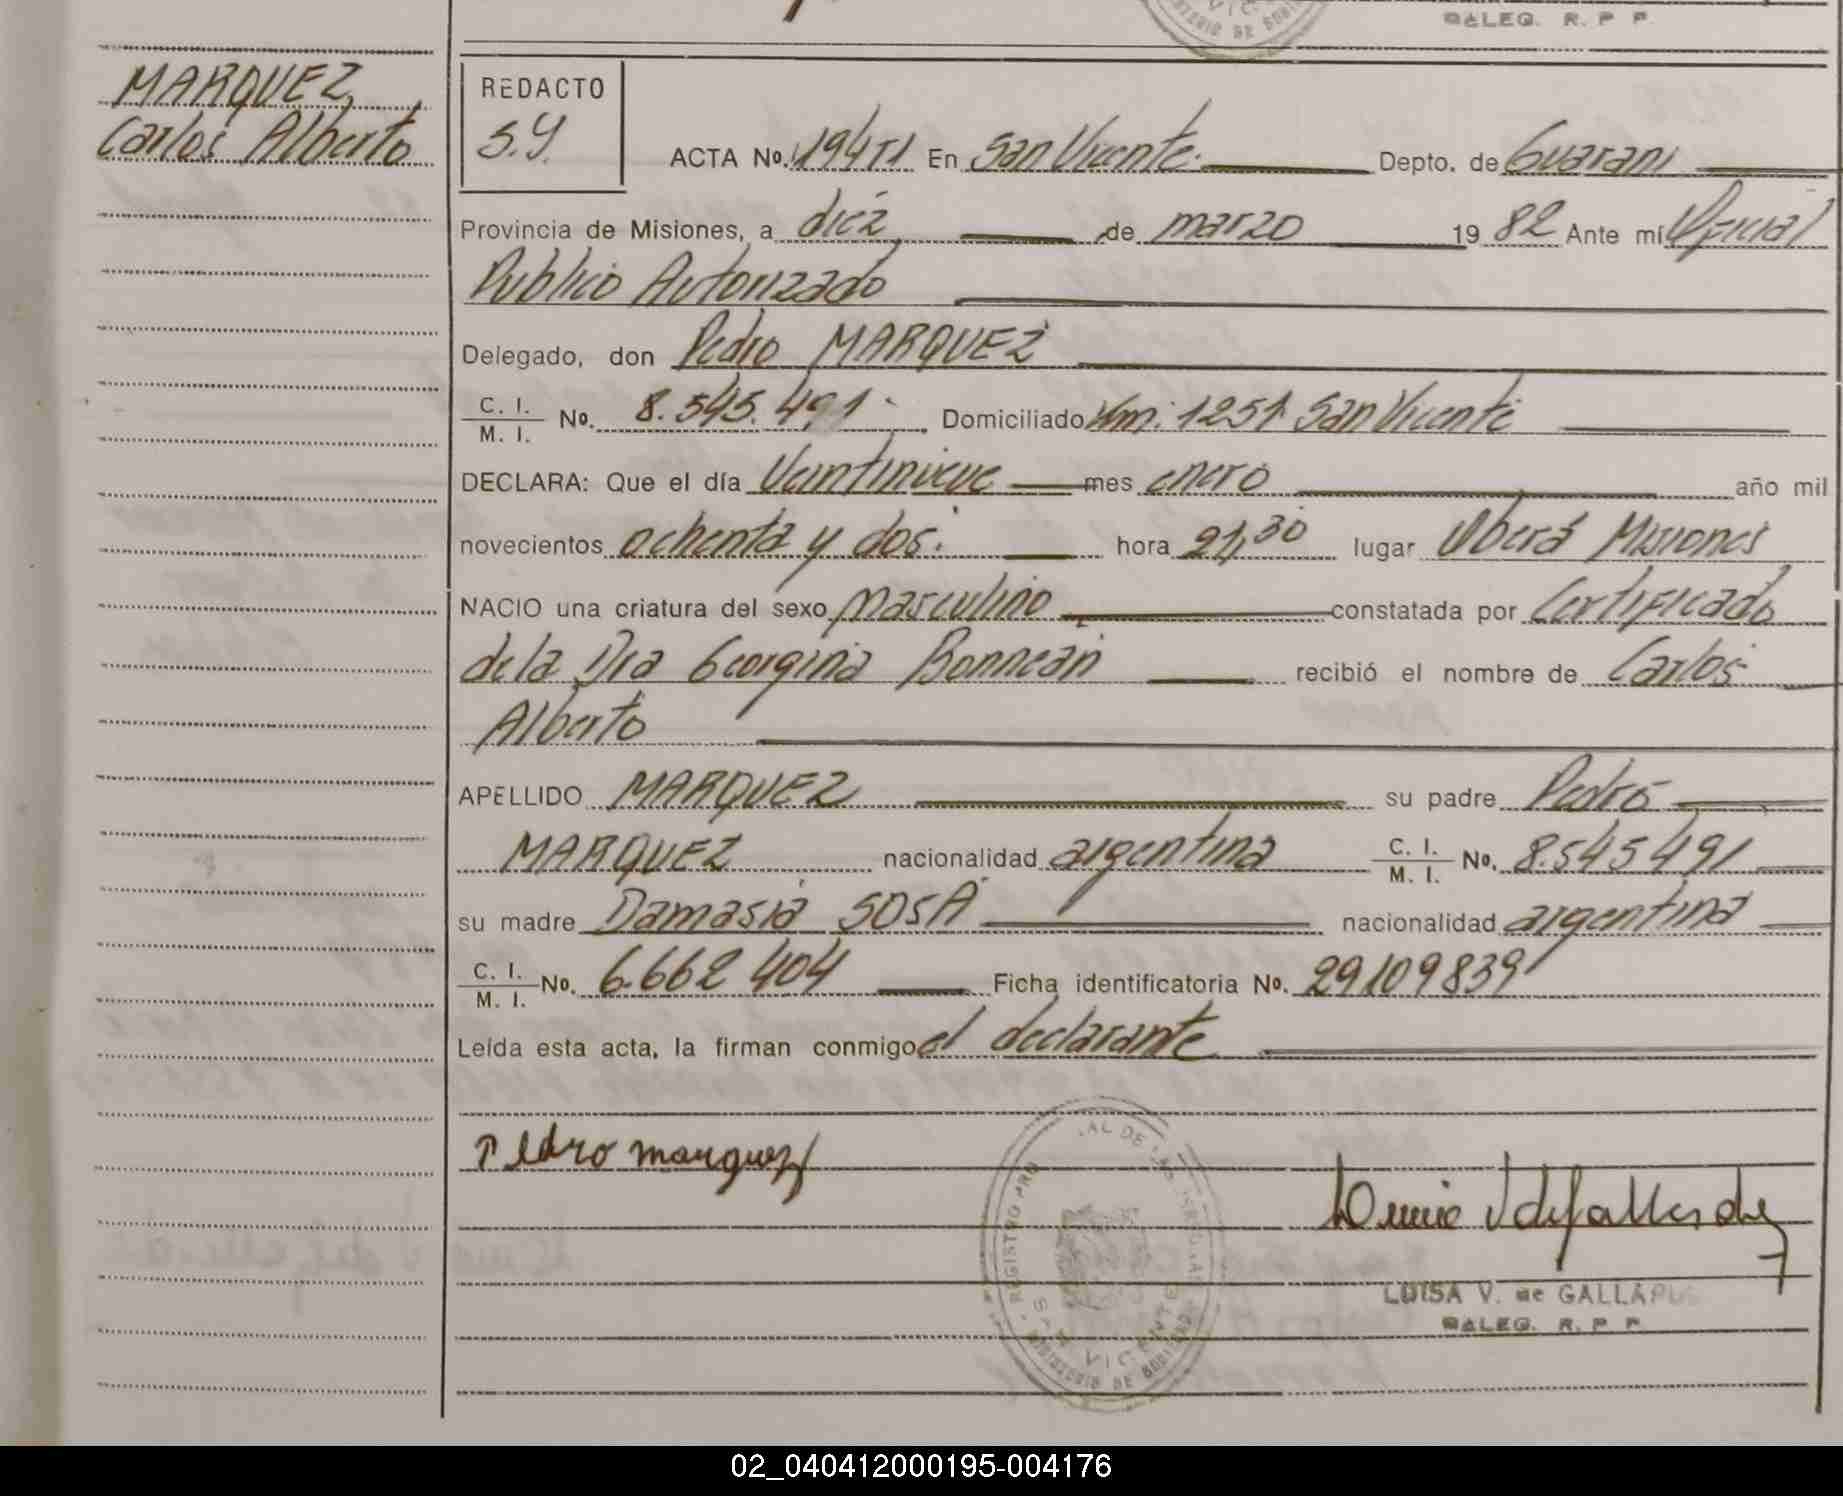 DALEG. R. P P.
MARQUEZ,
Carlos Alberto
REDACTO
S.Y.
ACTA No. 194 T1 En San Vicente. Depto. de Guaraní
Provincia de Misiones, a diez de marzo 19 82 Ante mí Oficial
Publico Autorizado
Delegado, don Pedro MARQUEZ
C. I. / M. I. No. 8.545.491 Domiciliado Km. 1251 San Vicente
DECLARA: Que el día Veintinueve mes enero año mil
novecientos ochenta y dos. hora 21,30 lugar Oberá Misiones
NACIO una criatura del sexo masculino constatada por Certificado
de la Dra Georgina Bonnean recibió el nombre de Carlos
Alberto
APELLIDO MARQUEZ su padre Pedro
MARQUEZ nacionalidad argentina C. I. / M. I. No. 8.545491
su madre Damasia SOSA nacionalidad argentina
C. I. / M. I. No. 6.662 404 Ficha identificatoria No. 29109839
Leída esta acta, la firman conmigo el declarante
Pedro marquez
REGISTRO
SAN VICENTE
MINISTERIO DE GOBIERNO
LUISA V. de GALLARDO
DALEG. R. P P.
02_040412000195-004176